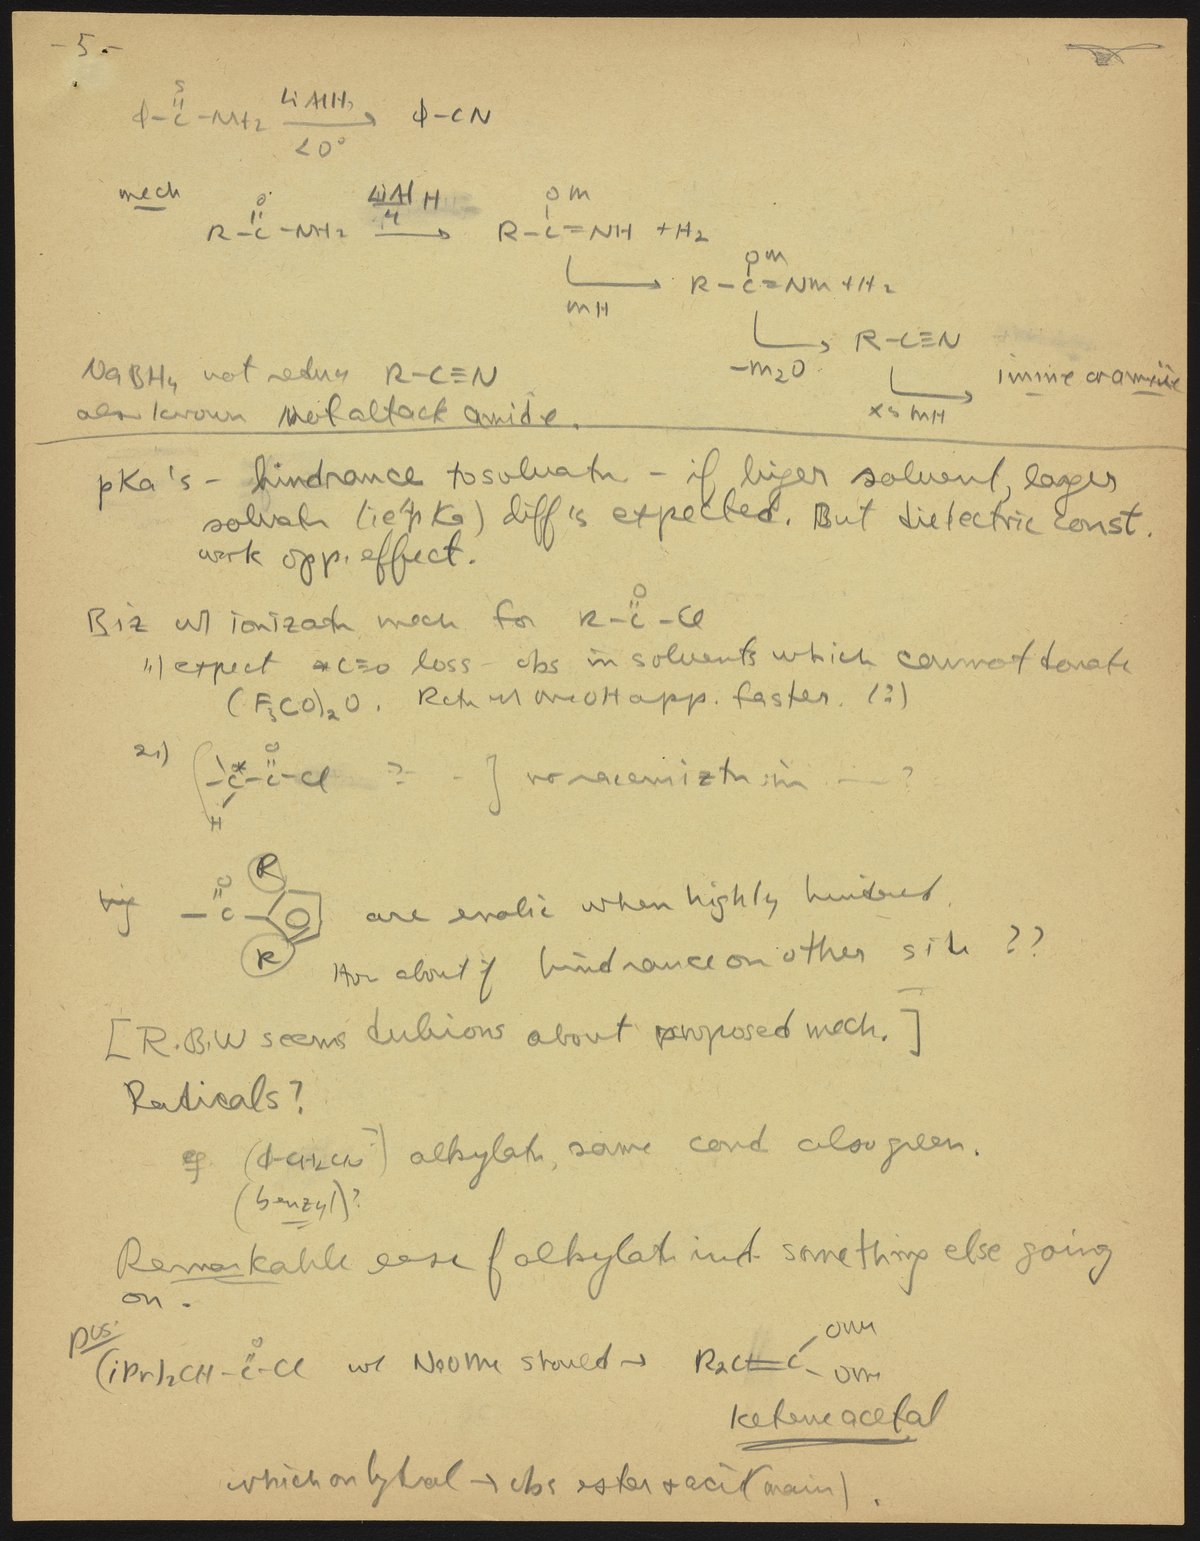 -5-
S
φ-C-NH2 LiAlH4 <0° → φ-CN
mech
O
R-C-NH2 LiAlH4 → R-C=NH + H2
OM
MH → R-C=NM + H2
OM
-M2O → R-C≡N
xs MH → imine or amine
NaBH4 not reduces R-C≡N
also known not attack amide.
pKa's - hindrance to solvatn - if bigger solvent, larger
solvatn (ie pKa) diff is expected. But dielectric const.
work opp. effect.
Biz w/ ionizatn mech for R-C-Cl
O
1) expect *C≡O loss - obs in solvents which cannot donate
(F3CO)2O. Rctn w/ MeOH app. faster. (?)
2.) -C*-C-Cl ? - ] no racemiztn in — ?
O
H
O
-C- R R are enolic when highly hindered.
How about if hindrance on other side ??
[R.B.W seems dubious about proposed mech.]
Radicals?
eg (φ-CH2CN-) alkylatn, same cond also green.
(benzyl)?
Remarkable ease of alkylatn ind. something else going
on.
pos.
(iPr)2CH-C-Cl w/ NaOMe should → R2C=C OMe OMe
O
ketene acetal
which on hydrol → obs ester + acid (main).